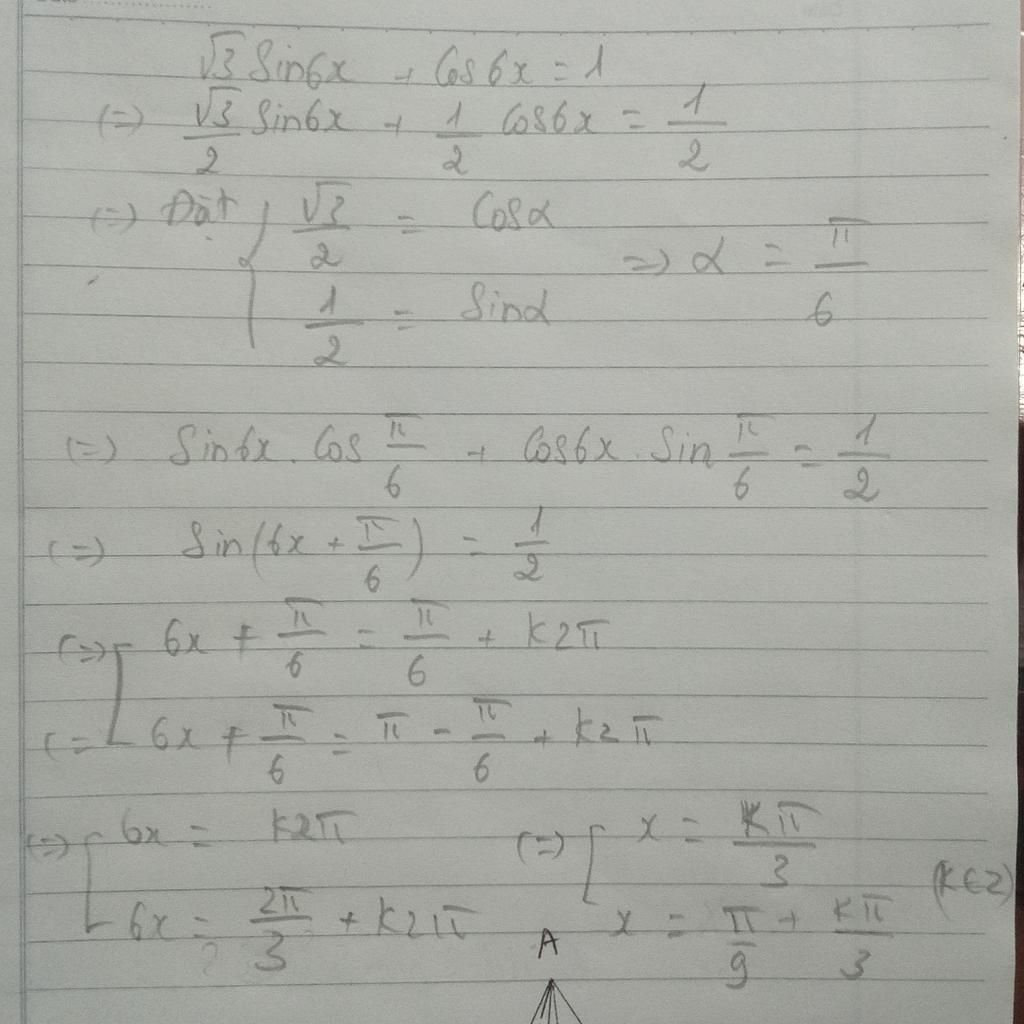 √3 Sin6x + Cos6x = 1
(=) √3/2 Sin6x + 1/2 Cos6x = 1/2
(=) Đặt { √3/2 = Cosα
=> α = π/6
1/2 = Sinα
(=) Sin6x . Cos π/6 + Cos6x . Sin π/6 = 1/2
(=) Sin(6x + π/6) = 1/2
(=) [ 6x + π/6 = π/6 + K2π
(= 6x + π/6 = π - π/6 + K2π
(=) [ 6x = K2π (=) [ x = Kπ/3
(K∈Z)
6x = 2π/3 + K2π x = π/9 + Kπ/3
A